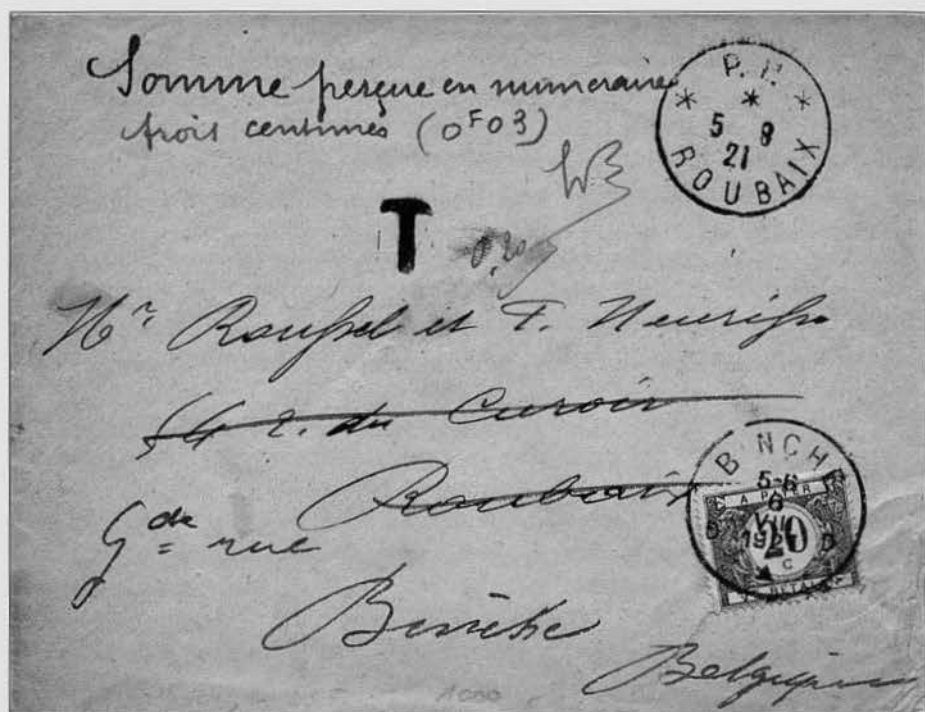 Somme perçue en numeraire
trois centimes (0F03)
P.P.
5 8
21
ROUBAIX
T
0,20
Mr Roussel et F.
54 r. du Curoir
Roubaix
Gde rue
Binche
Belgique
BINCHE
5-6
6
VIII
1921
A PAYER
20
C
TE BETALEN
1000